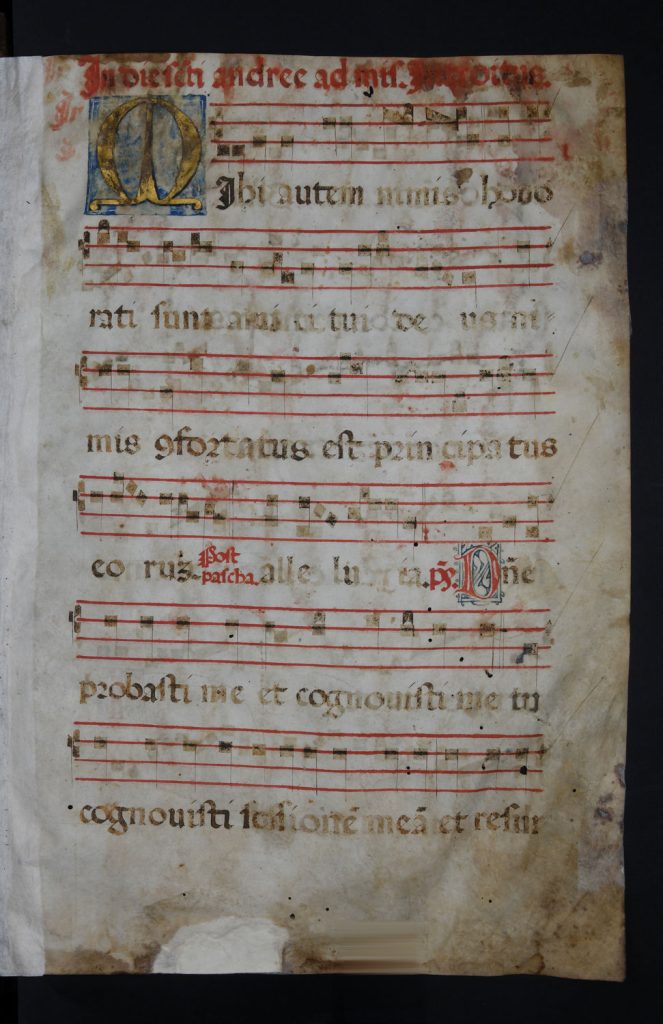 In die scti andree ad mis. Introitus.
MIhi autem nimis hono
rati sunt amici tui de us ni
mis 9fortatus est principa tus
eo ruz. Post pascha. alle lu ia. ps. Dñe
probasti me et cognovisti me tu
cognovisti sessionē meā et resur